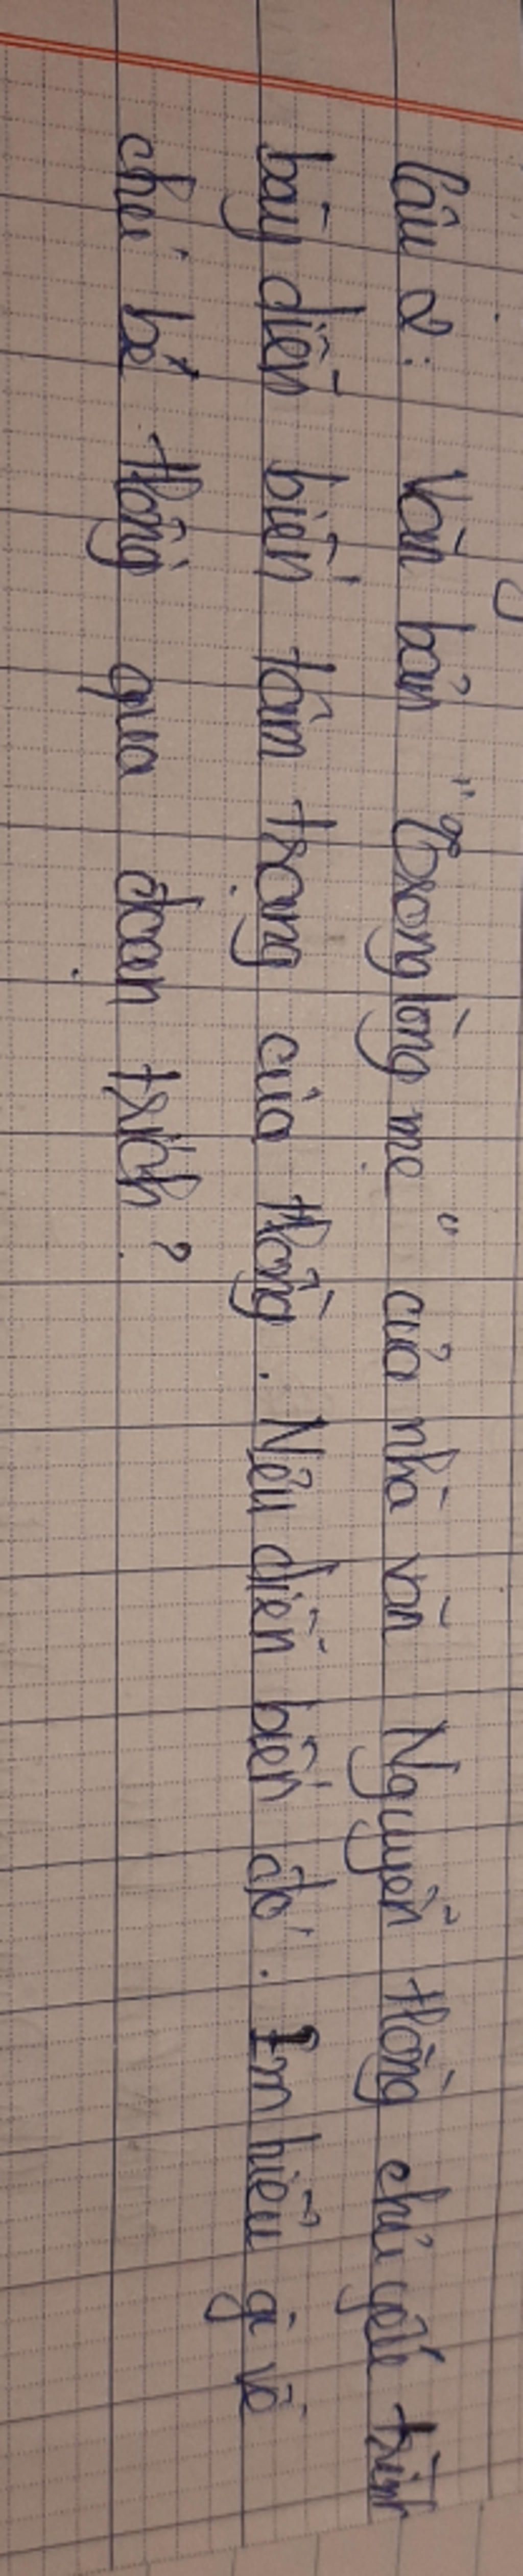 Câu 2: Văn bản "Trong lòng mẹ" của nhà văn Nguyên Hồng chủ yếu trình
bày diễn biến tâm trạng của Hồng. Nêu diễn biến đó. Em hiểu gì về
chú bé Hồng qua đoạn trích?